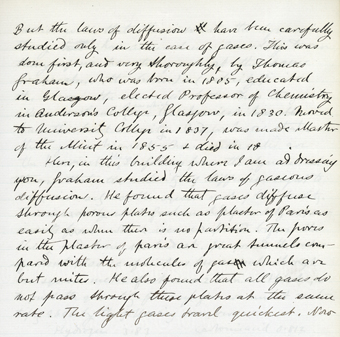 But the laws of diffusion have been carefully
studied only in the case of gases. This was
done first, and very thoroughly, by Thomas
Graham, who was born in 1805, educated
in Glasgow, elected Professor of Chemistry
in Anderson's College, Glasgow, in 1830. Moved
to University College in 1837, was made Master
of the Mint in 1855 & died in 18
Here, in this building where I am addressing
you, Graham studied the laws of gaseous
diffusion. He found that gases diffuse
through porous plates such as plaster of Paris as
easily as when there is no partition. The pores
in the plaster of paris are great tunnels com-
pared with the molecules of gas which are
but mites. He also found that all gases do
not pass through these plates at the same
rate. The light gases travel quickest. Now